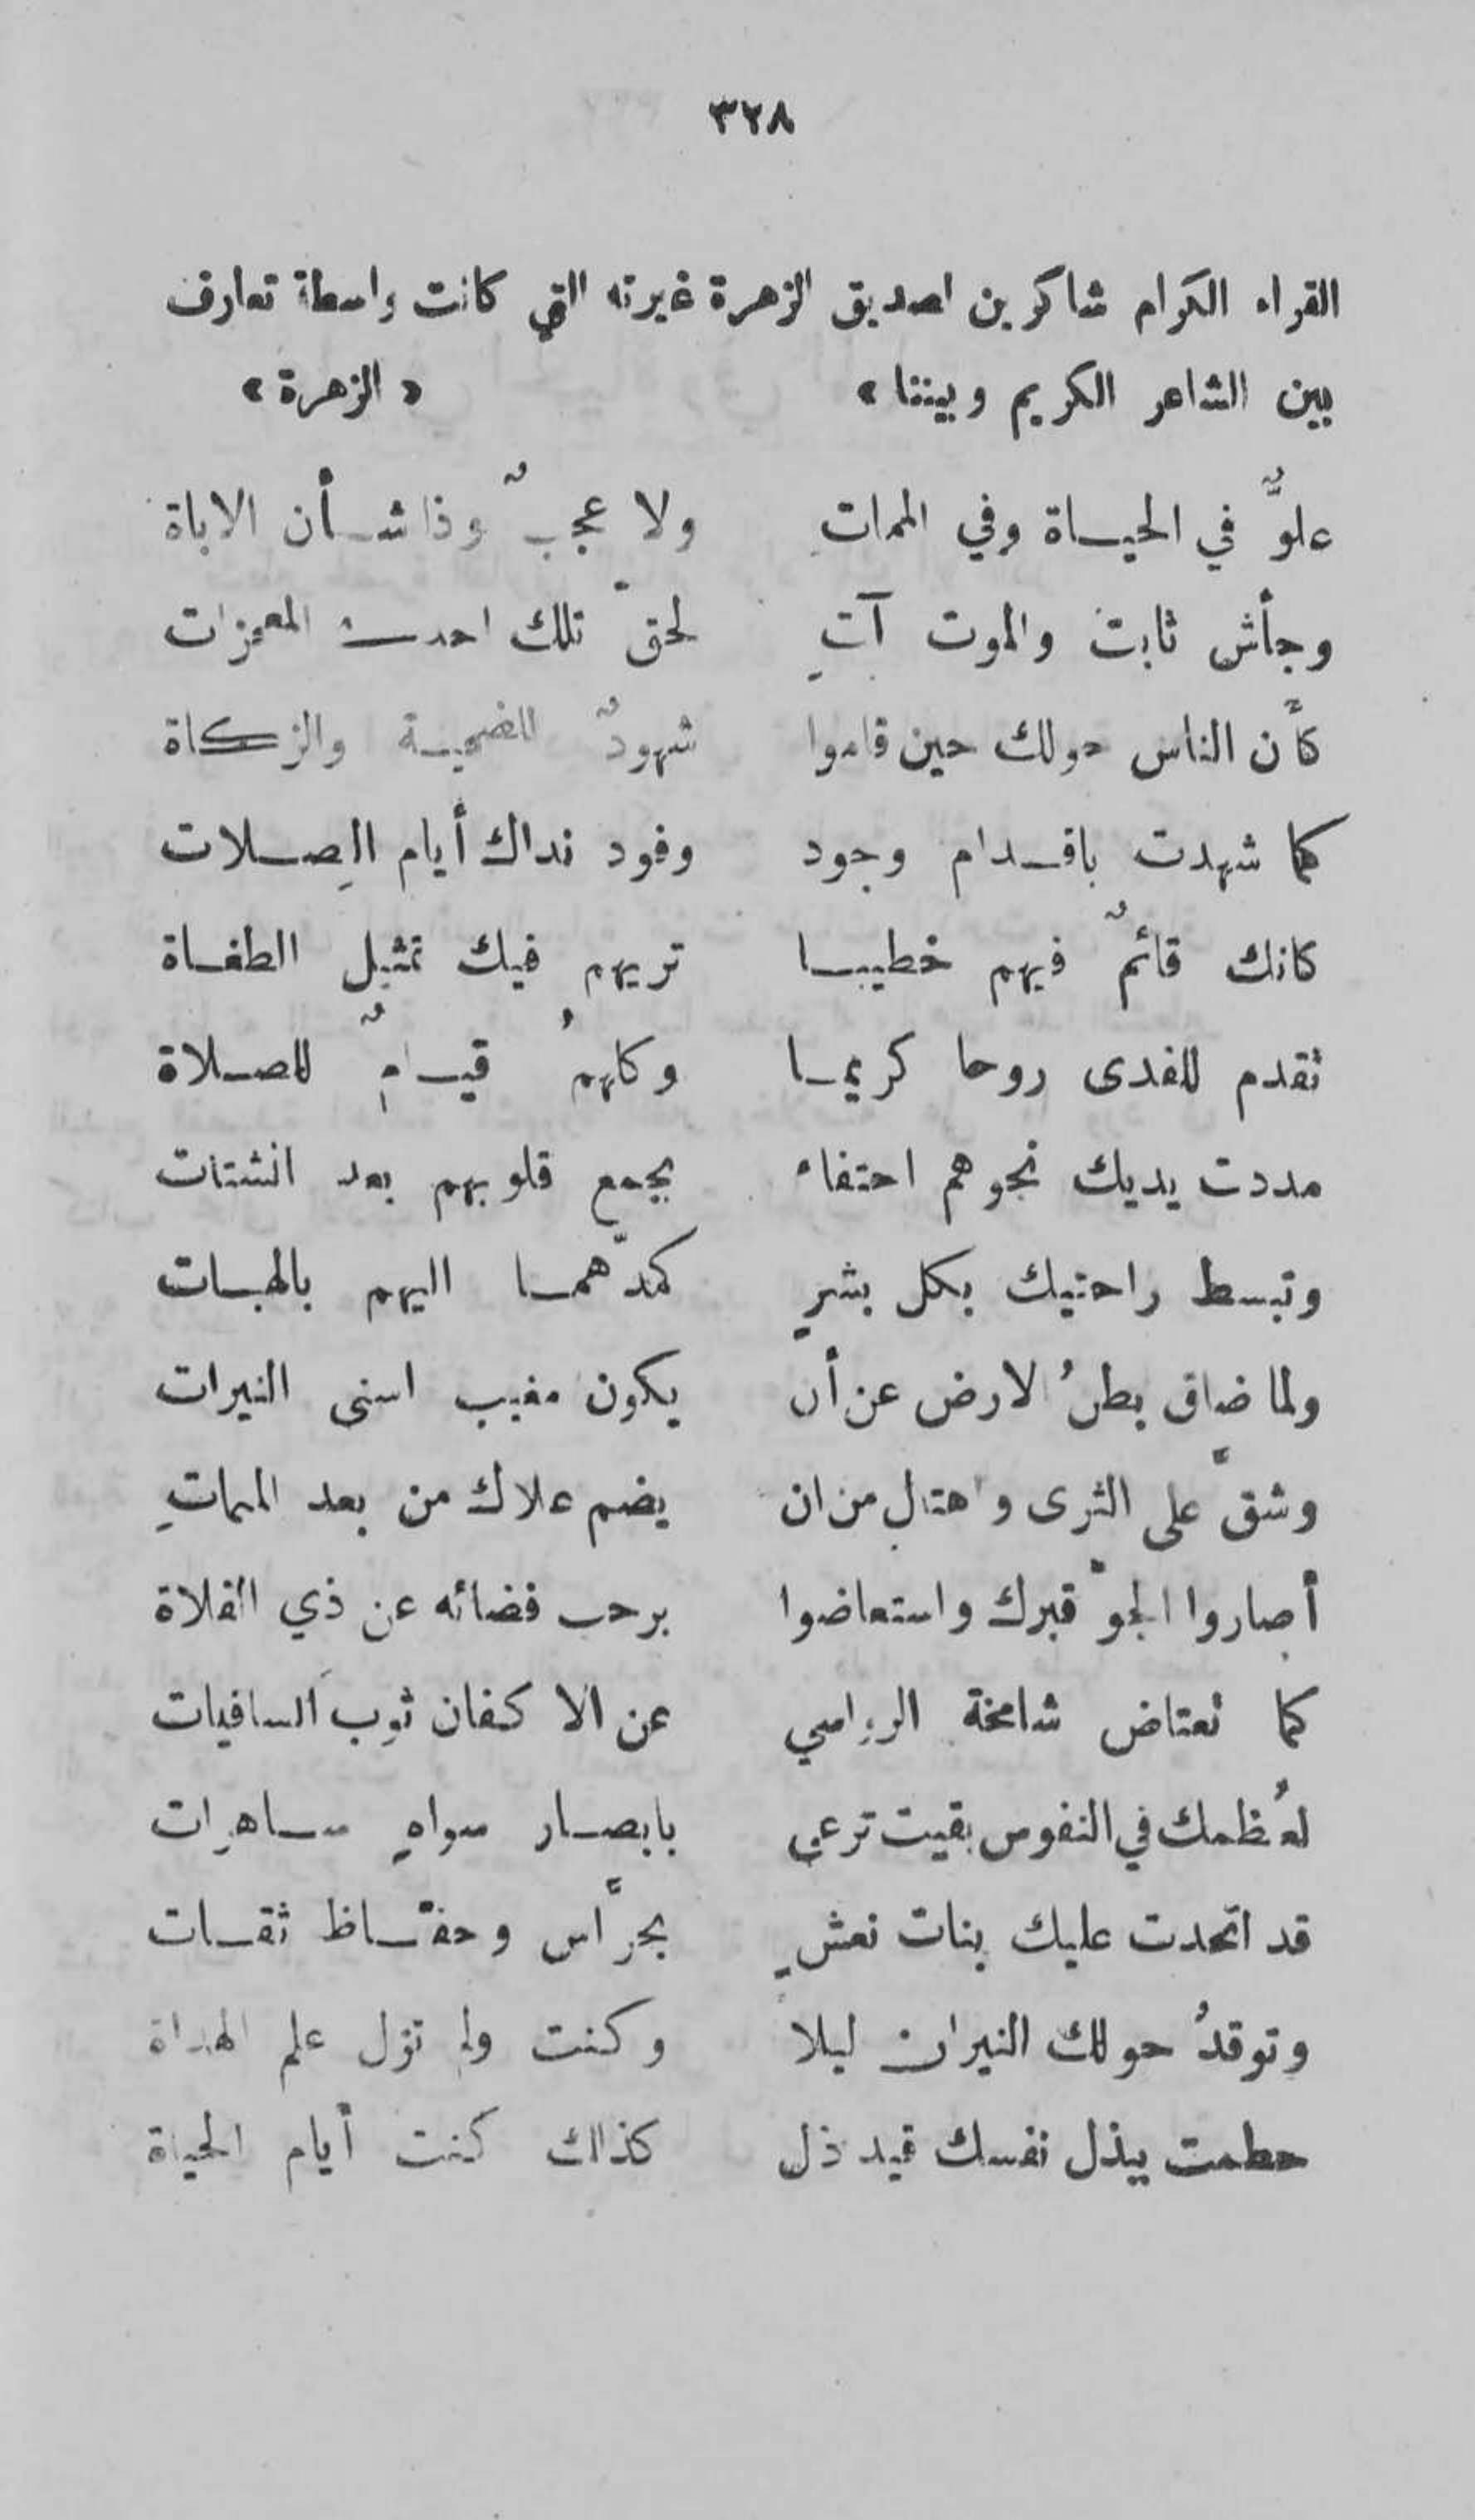 ٣٢٨
القراء الكرام شاكرين لصديق الزهرة غيرته التي كانت واسطة تعارف
بين الشاعر الكريم وبيننا » « الزهرة »
علوٌّ في الحيـاة وفي الممات ولا عجبٌ وذا شـأن الاباة
وجأش ثابت والموت آتٍ لحقّ تلك احدى المعجزات
كأَّن الناس حولك حين قاموا شهودٌ للضحيـة والزكاة
كما شهدت باقـدام وجود وفود نداك أيام الصِـلات
كانك قائمٌ فيهم خطيبـا تريهم فيك تمثيل الطغـاة
تقدم للفدى روحا كريمـا وكلهمُ قيـامٌ للصـلاة
مددت يديك نحوهم احتفاء بجمع قلوبهم بعد انشتات
وتبسط راحتيك بكل بشرٍ كمدّهمـا اليهم بالهبـات
ولما ضاق بطنُ الارض عن أن يكون مغيب اسنى النيرات
وشقَّ على الثرى واهتال من ان يضم علاك من بعد المماتِ
أصاروا الجوّ قبرك واستعاضوا برحب فضائه عن ذي الفلاة
كما تعتاض شامخة الرواسي عن الاكفان ثوبَ السافيات
لعُظمك في النفوس بقيت ترعى بابصـار سواهٍ سـاهرات
قد اتحدت عليك بنات نعشٍ بحرَّاس وحفّـاظ ثقـات
وتوقدُ حولك النيران ليلا وكنت ولم تزل علم الهداة
حطمت ببذل نفسك قيد ذل كذلك كنت أيام الحياة